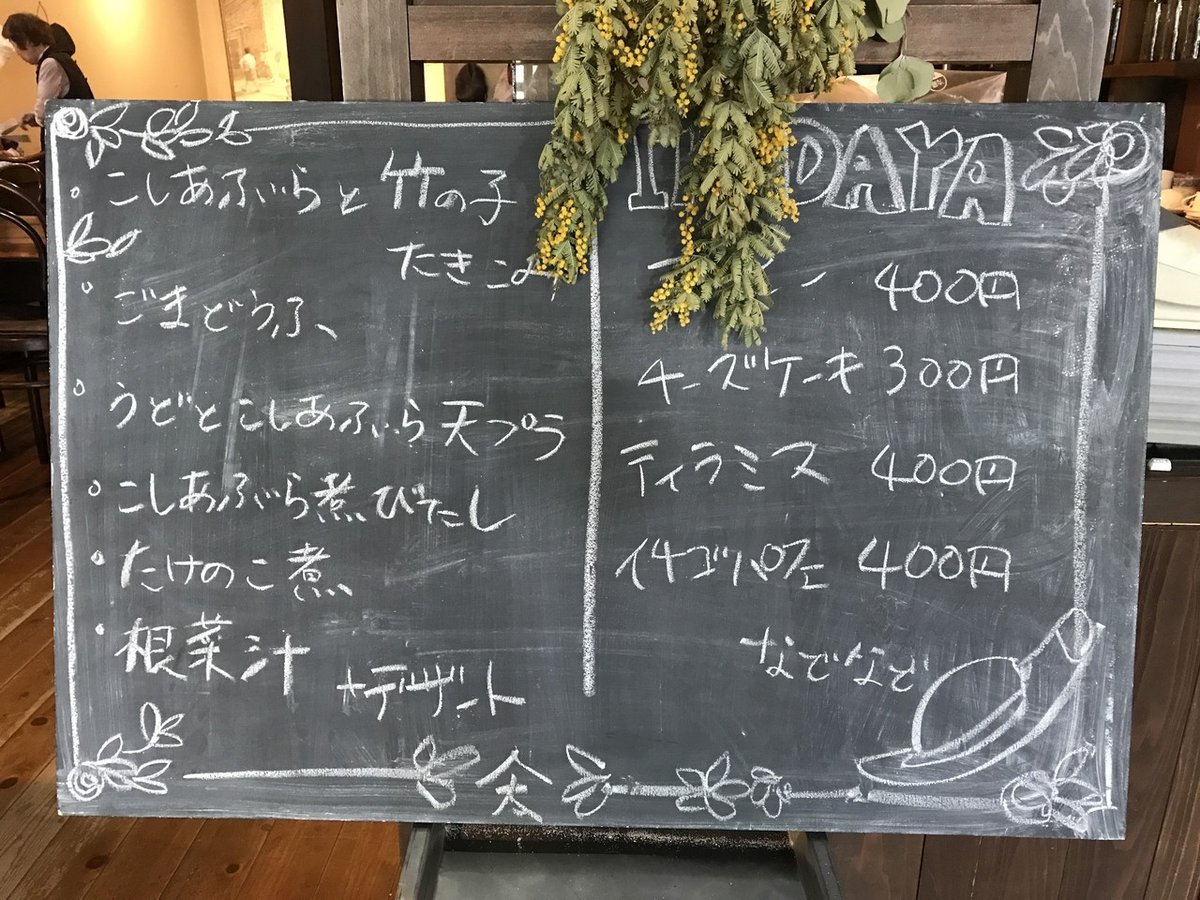 こしあぶらと竹の子
たきこみ
ごまどうふ、
うどとこしあぶら天プラ
こしあぶら煮びたし
たけのこ煮、
根菜汁
+デザート
DAYA
400円
チーズケーキ 300円
ティラミス 400円
イチゴパフェ 400円
などなど